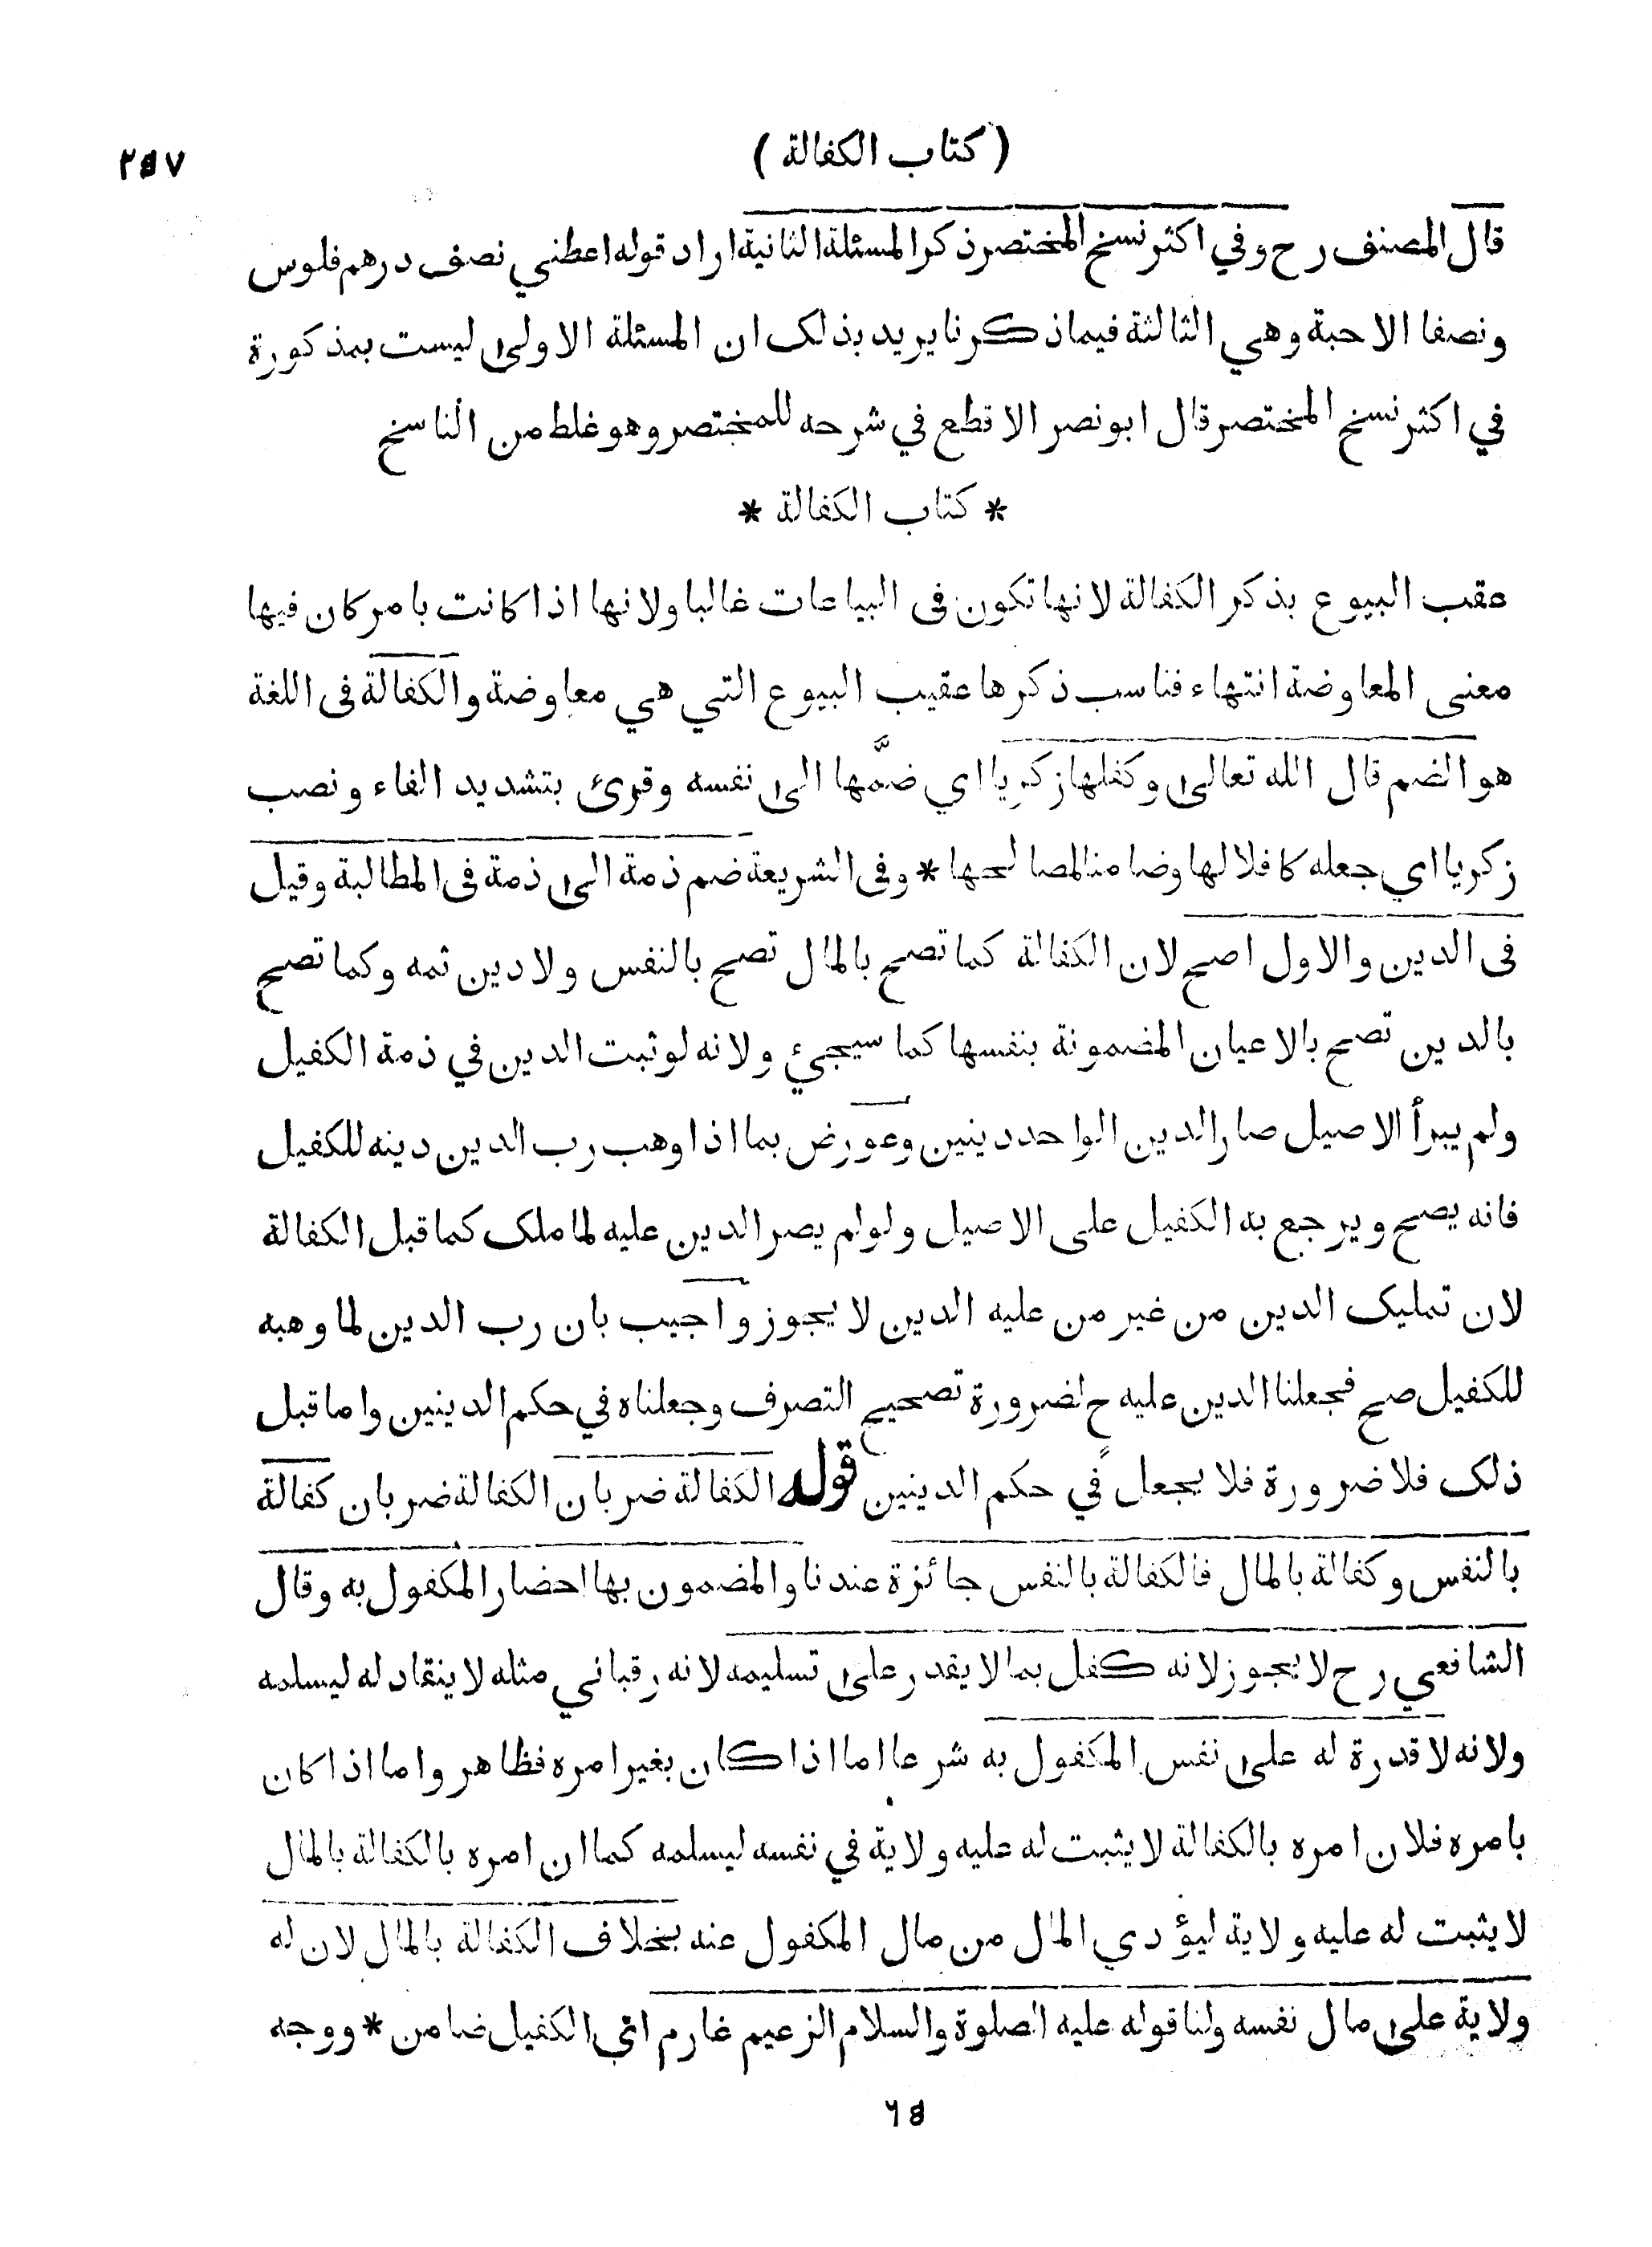 ( كتاب الكفالة ) ٢٥٧
قال المصنف رح وفي اكثر نسخ المختصر ذكر المسئلة الثانية اراد قوله اعطني نصف درهم فلوس
ونصفا الا حبة وهي الثالثة فيما ذكرنا يريد بذلك ان المسئلة الاولى ليست بمذكورة
في اكثر نسخ المختصر قال ابو نصر الاقطع في شرحه للمختصر وهو غلط من الناسخ
* كتاب الكفالة *
عقب البيوع بذكر الكفالة لانها تكون فى البياعات غالبا ولانها اذا كانت بامر كان فيها
معنى المعاوضة انتهاء فناسب ذكرها عقيب البيوع التي هي معاوضة والكفالة فى اللغة
هو الضم قال الله تعالى وكفلها زكريا اي ضمّها الى نفسه وقرئ بتشديد الفاء ونصب
زكريا اي جعله كافلا لها وضامنا لمصالحها * وفى الشريعة ضم ذمة الى ذمة فى المطالبة وقيل
فى الدين والاول اصح لان الكفالة كما تصح بالمال تصح بالنفس ولا دين ثمه وكما تصح
بالدين تصح بالاعيان المضمونة بنفسها كما سيجيء ولانه لو ثبت الدين في ذمة الكفيل
ولم يبرأ الاصيل صار الدين الواحد دينين وعورض بما اذا وهب رب الدين دينه للكفيل
فانه يصح ويرجع به الكفيل على الاصيل ولو لم يصر الدين عليه لما ملك كما قبل الكفالة
لان تمليك الدين من غير من عليه الدين لا يجوز واجيب بان رب الدين لما وهبه
للكفيل صح فجعلنا الدين عليه ح لضرورة تصحيح التصرف وجعلناه في حكم الدينين واما قبل
ذلك فلا ضرورة فلا يجعل في حكم الدينين قوله الكفالة ضربان الكفالة ضربان كفالة
بالنفس وكفالة بالمال فالكفالة بالنفس جائزة عندنا والمضمون بها احضار المكفول به وقال
الشافعي رح لا يجوز لانه كفل بما لا يقدر على تسليمه لانه رقباني مثله لا ينقاد له ليسلمه
ولانه لا قدرة له على نفس المكفول به شرعا اما اذا كان بغير امره فظاهر واما اذا كان
بامره فلان امره بالكفالة لا يثبت له عليه ولاية في نفسه ليسلمه كما ان امره بالكفالة بالمال
لا يثبت له عليه ولاية ليؤدي المال من مال المكفول عنه بخلاف الكفالة بالمال لان له
ولاية على مال نفسه ولنا قوله عليه الصلوة والسلام الزعيم غارم اي الكفيل ضامن * ووجه